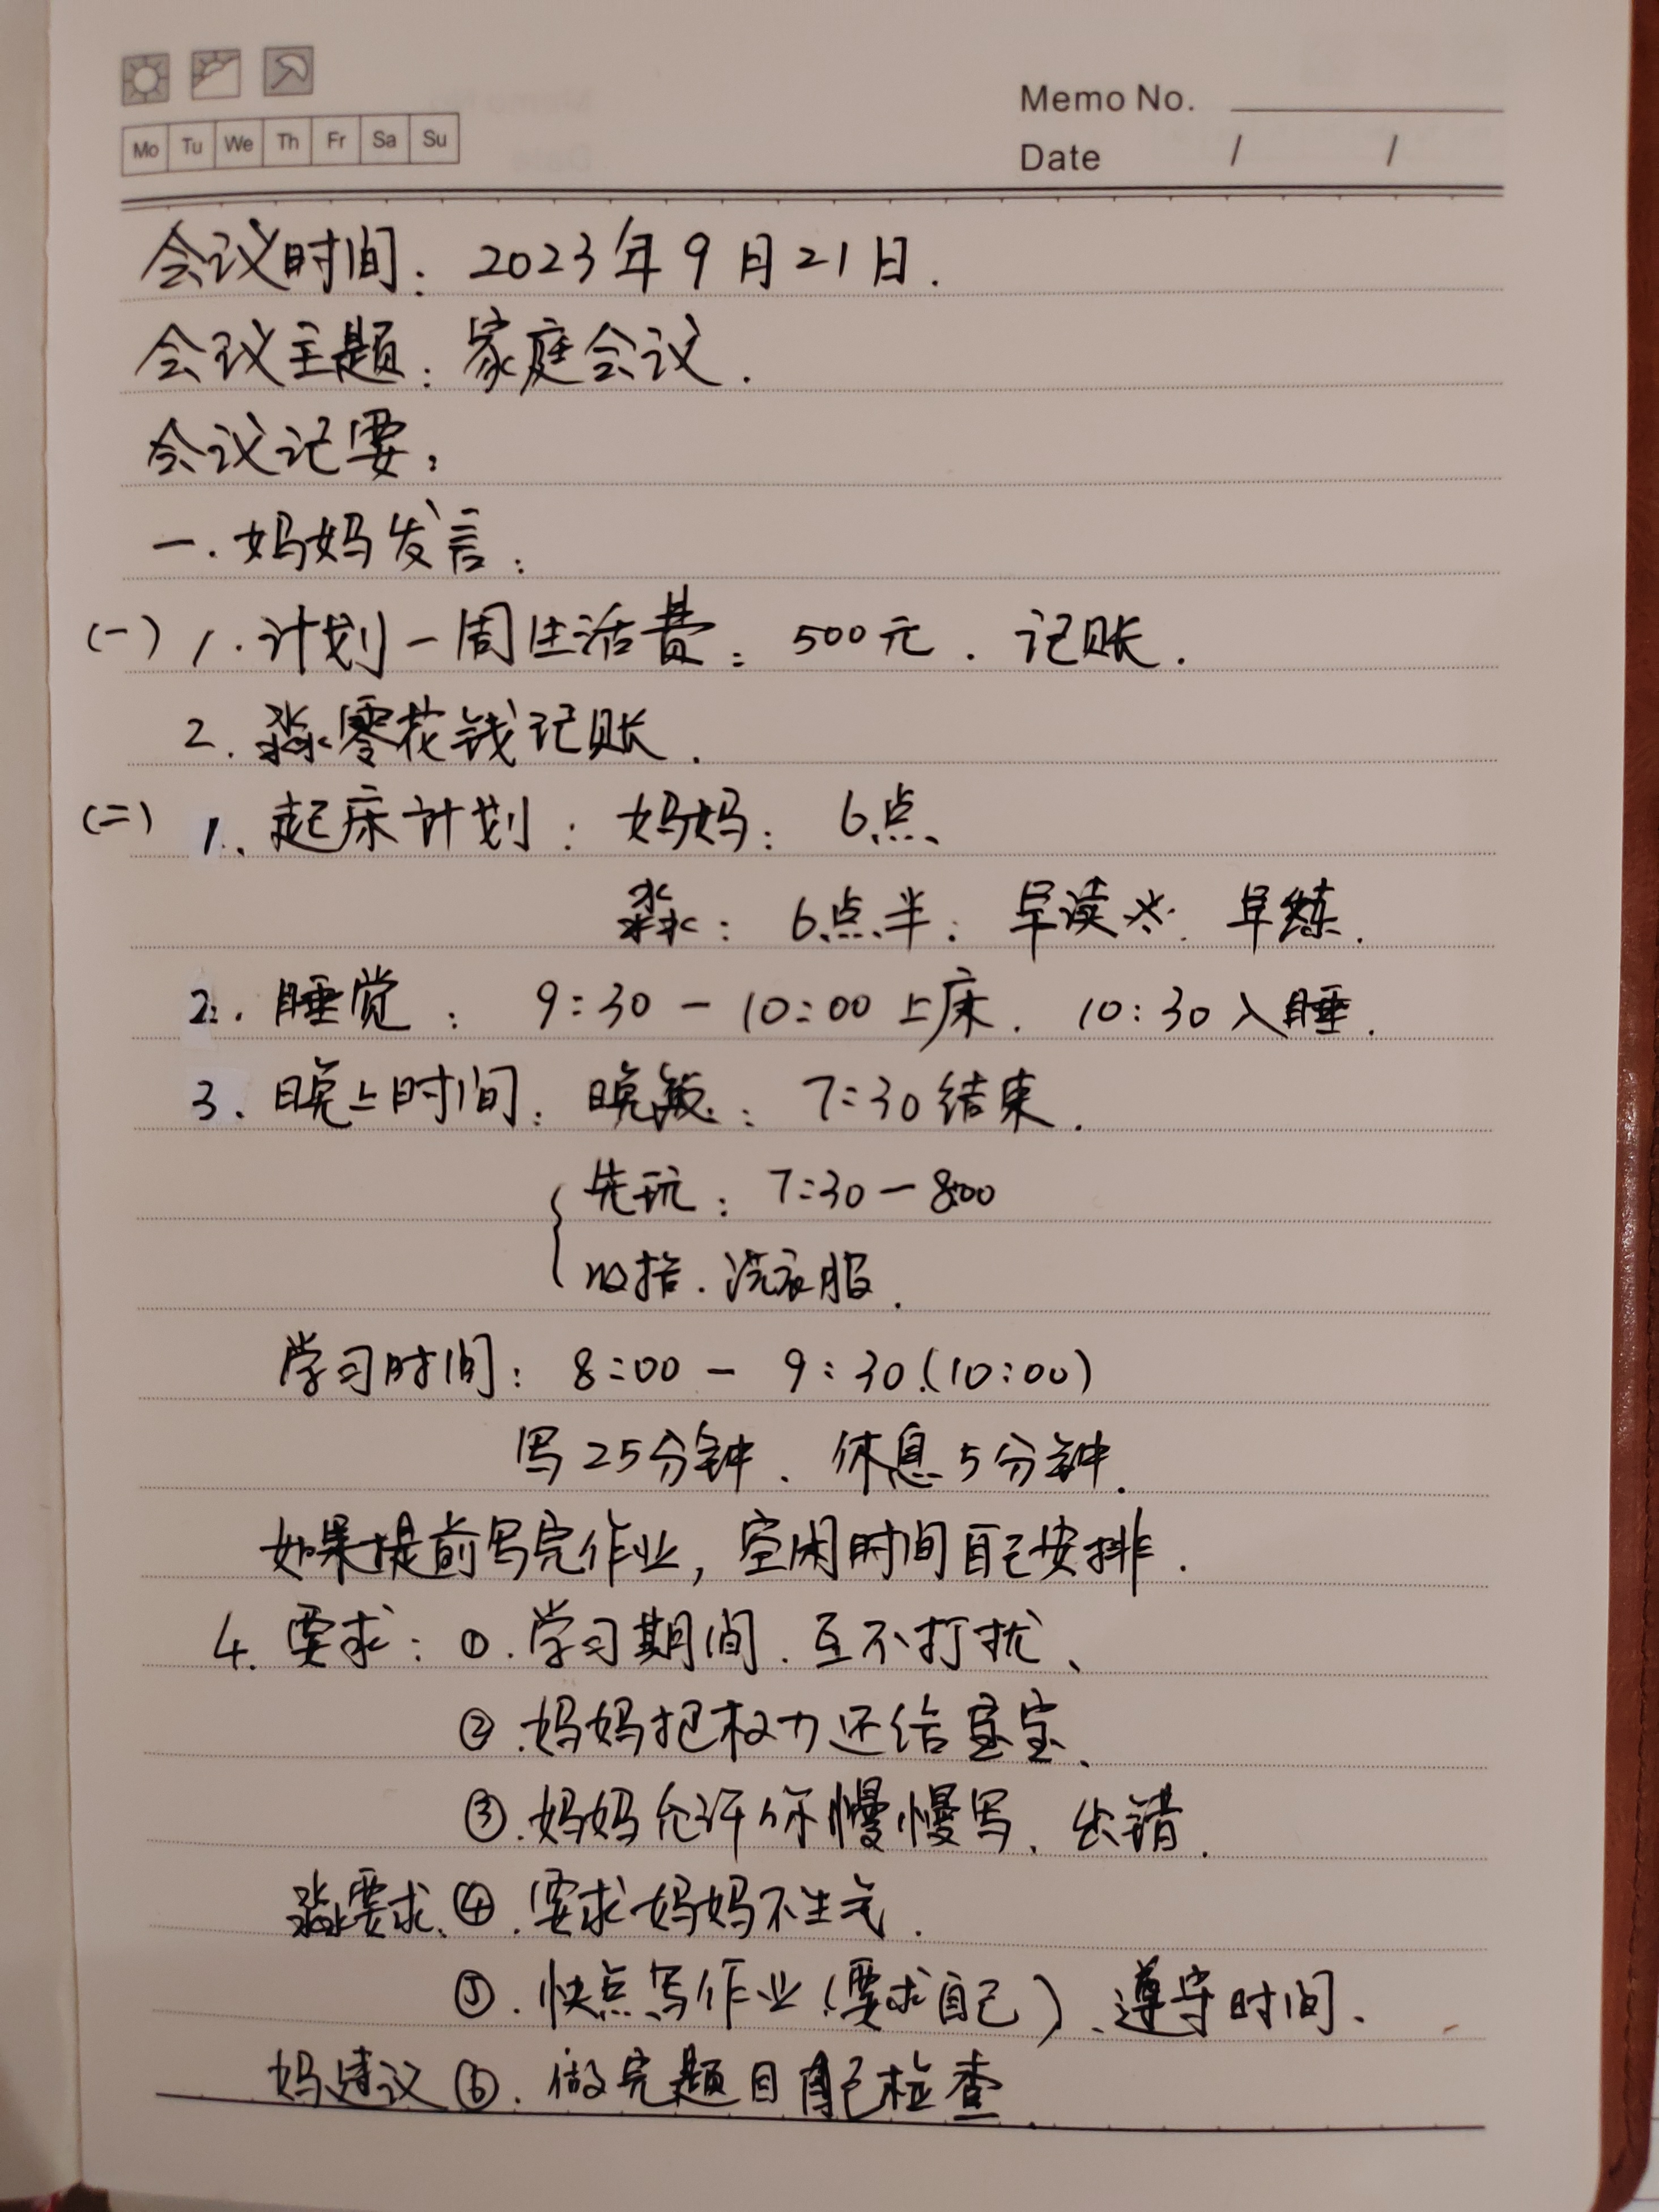 Memo No.
Mo Tu We Th Fr Sa Su
Date / /
会议时间：2023年9月21日.
会议主题：家庭会议.
会议记要：
一.妈妈发言：
(一) 1.计划一周生活费：500元.记账.
2.淼零花钱记账.
(二) 1.起床计划：妈妈：6点
淼：6点半：早读 早练.
2.睡觉：9:30－10:00上床.10:30入睡.
3.晚上时间：晚饭：7:30结束.
先玩：7:30－8:00
收拾.洗衣服.
学习时间：8:00－9:30.(10:00)
写25分钟、休息5分钟.
如果提前写完作业，空闲时间自己安排.
4.要求：①.学习期间.互不打扰、
②.妈妈把权力还给宝宝、
③.妈妈允许你慢慢写、出错.
淼要求.④.要求妈妈不生气.
⑤.快点写作业(要求自己)、遵守时间、
妈建议⑥.做完题目自己检查.